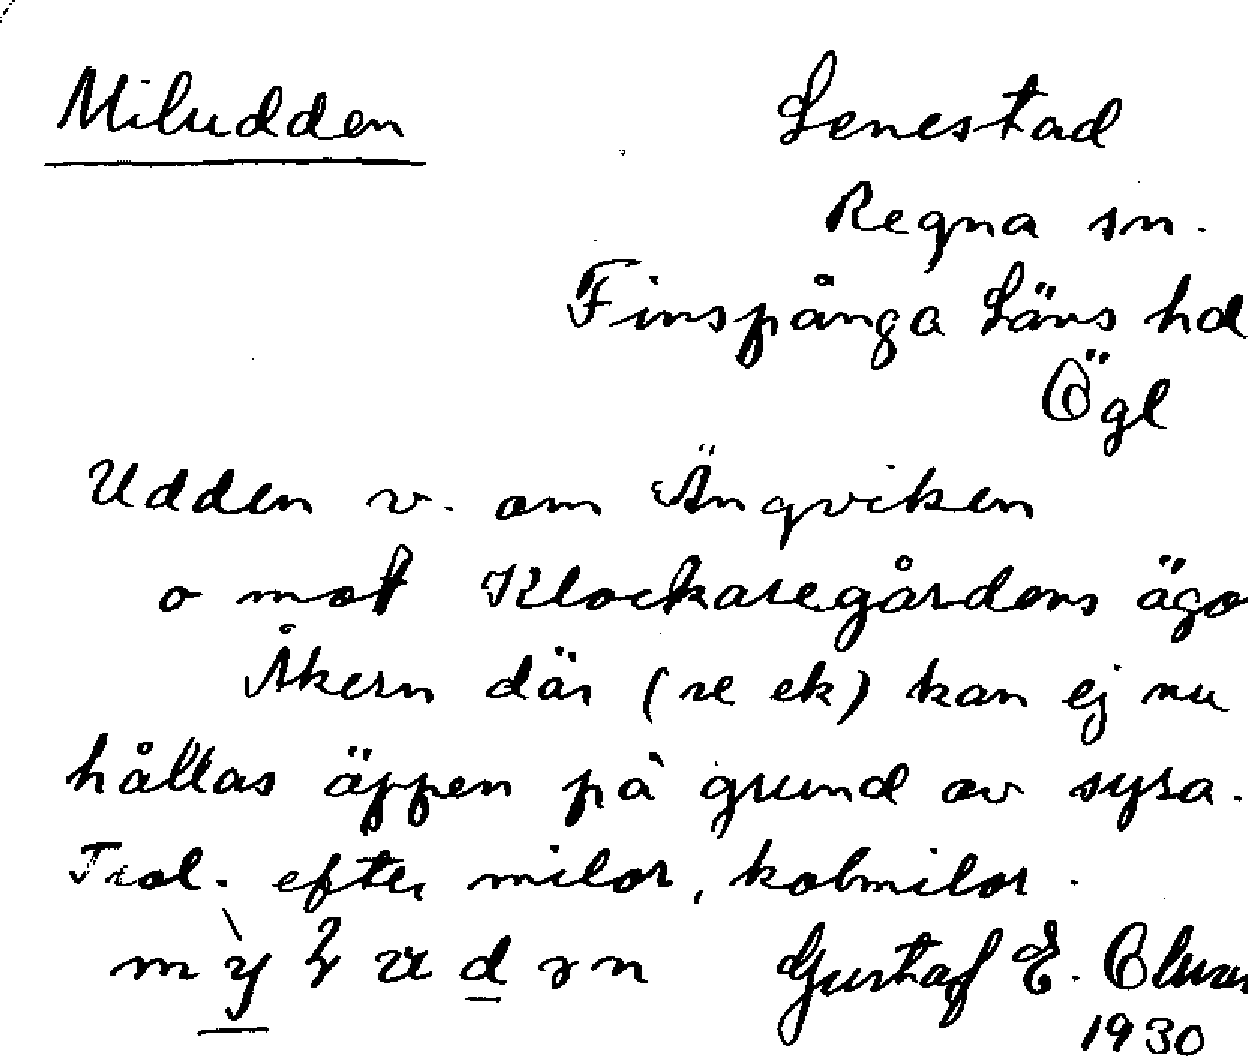 Miludden
Lenestad
Regna sn.
Finspånga Läns hd
Ögl
Udden v. om Ängviken
o mot Klockaregårdens ägo
Åkern där (re ek) kan ej nu
hållas äppen på grund av syra.
Trol. efter milor, kolmilor.
Gustaf E.
1930